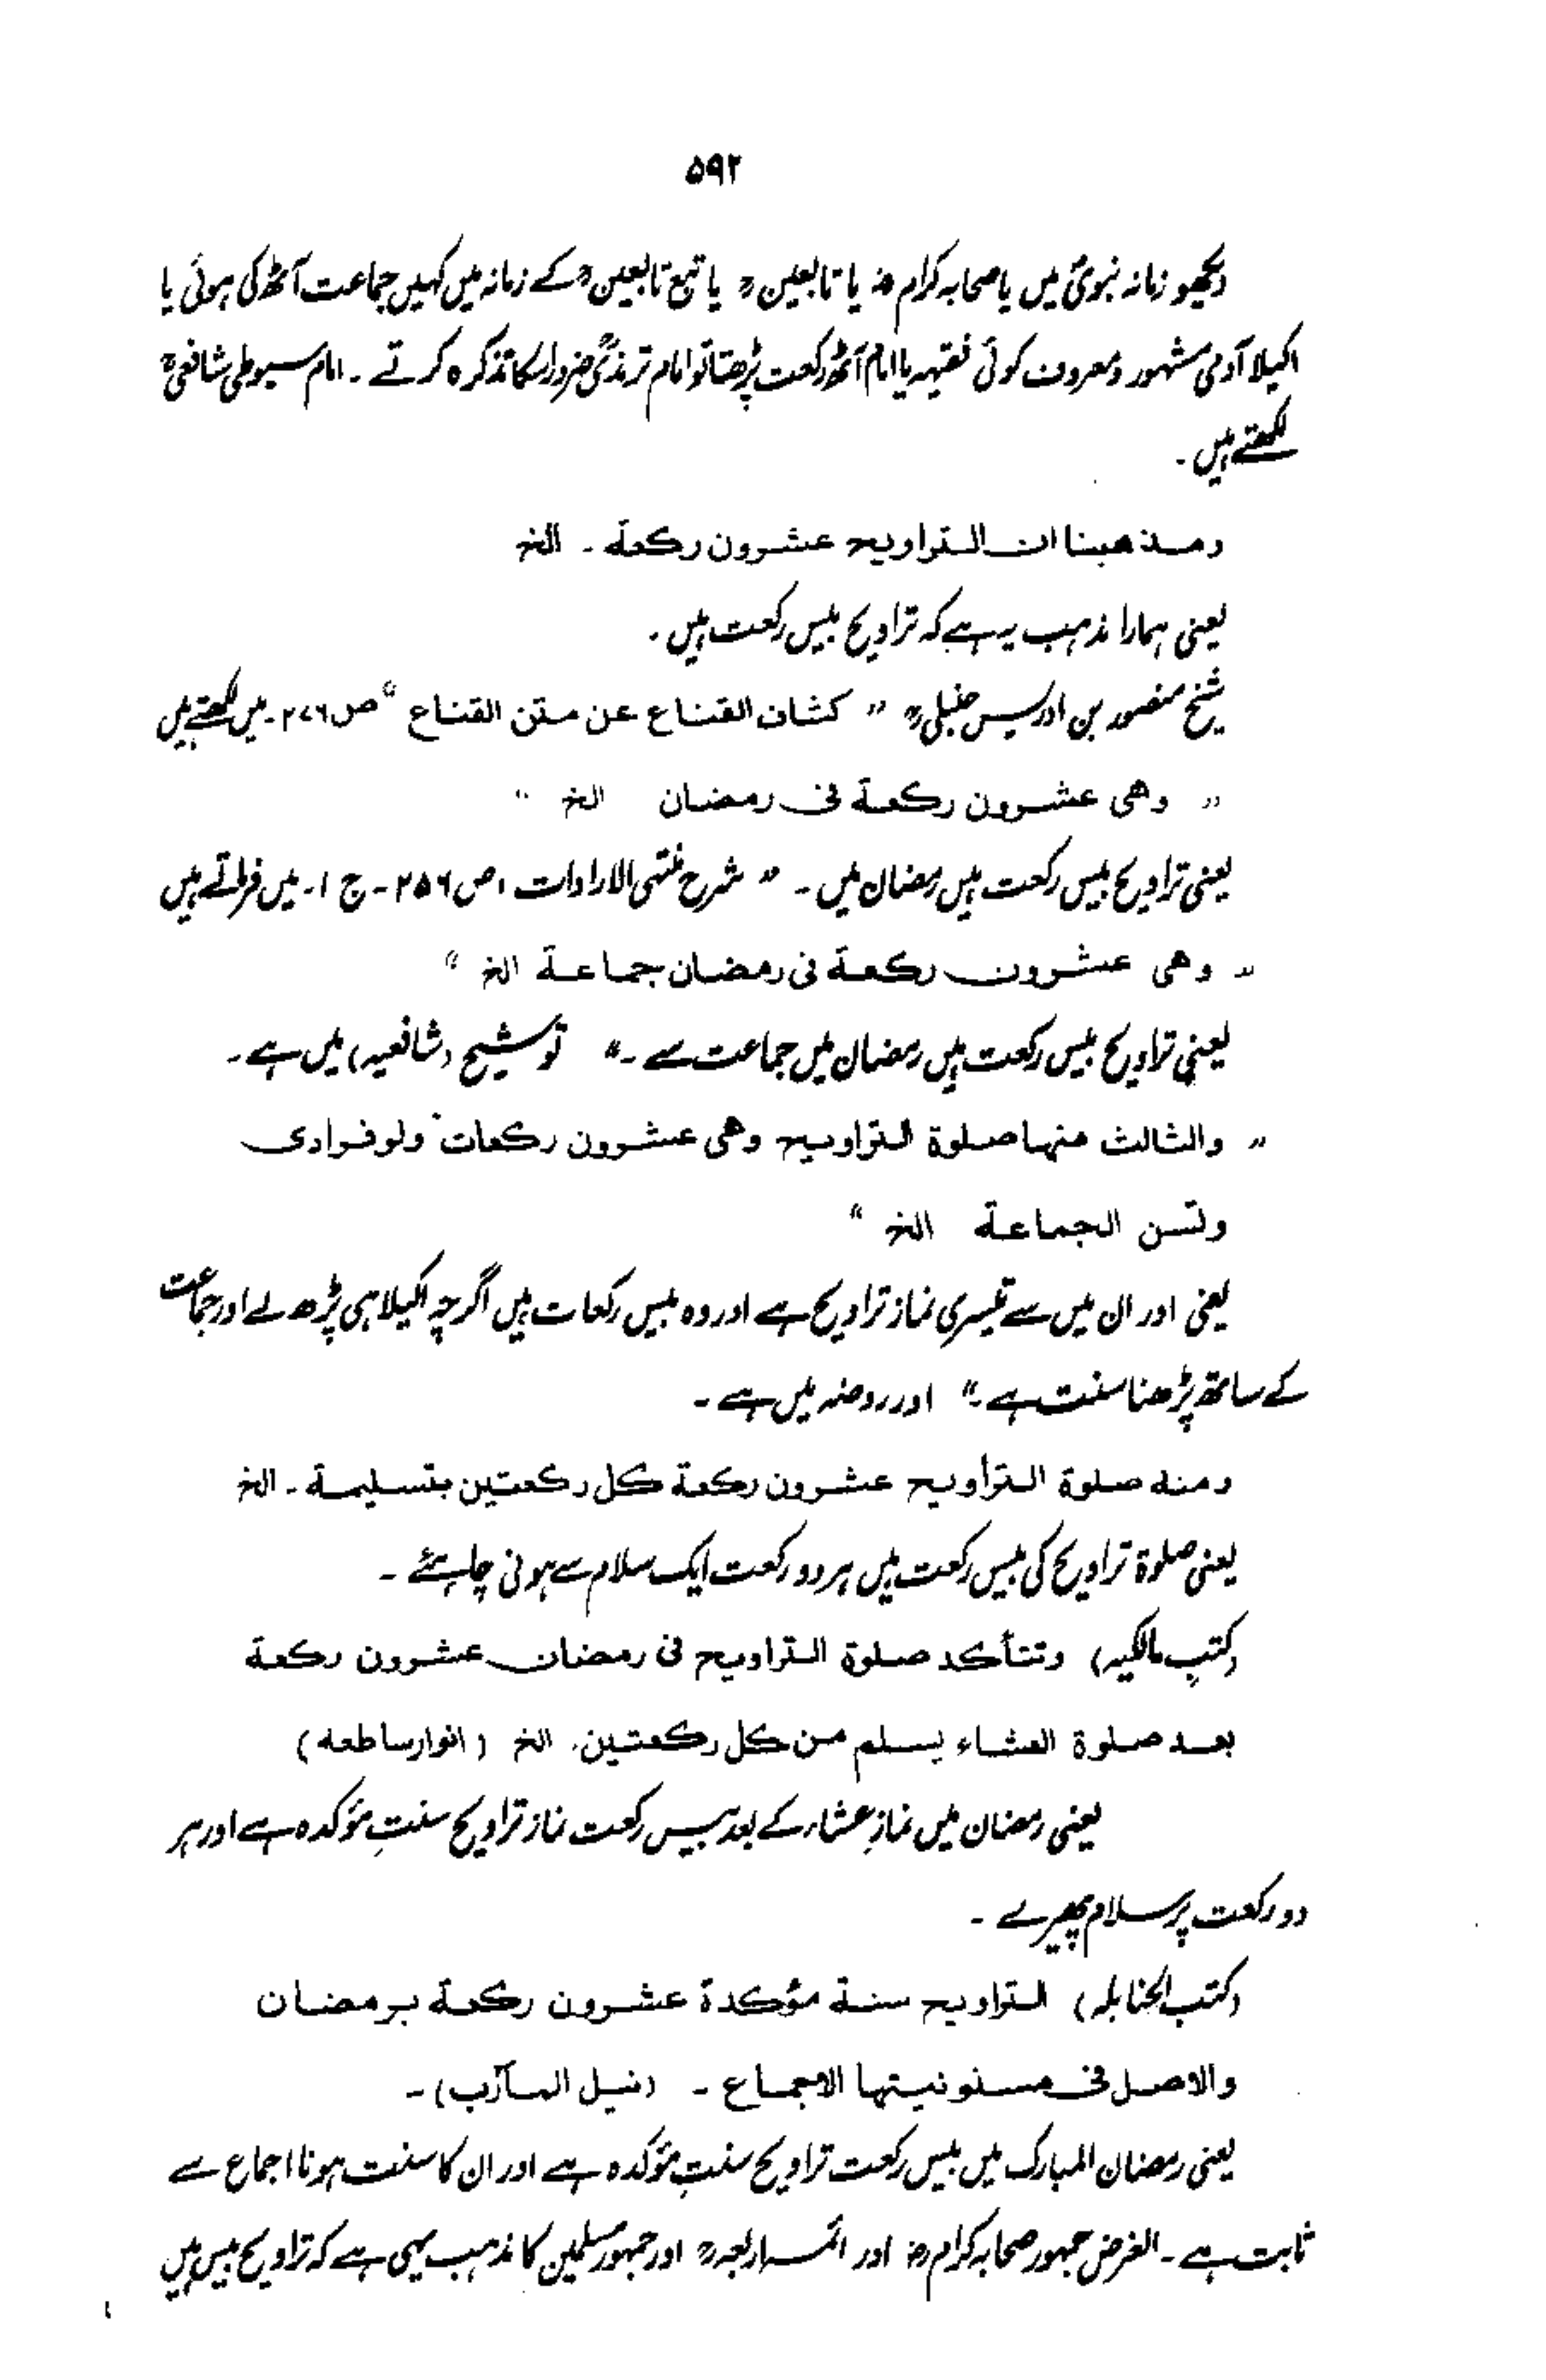 ۵۹۲
دیکھو زمانہ نبویؐ میں یا صحابہ کرامؓ یا تابعینؒ یا تبع تابعینؒ کے زمانہ میں کہیں جماعت آٹھ کی ہوئی یا
اکیلا آدمی مشہور و معروف کوئی فقیہہ یا امام آٹھ رکعت پڑھتا تو امام ترمذیؒ ضرور اسکا تذکرہ کرتے ۔ امام سیوطی شافعیؒ
لکھتے ہیں ۔
ومذهبنا ان التراويح عشرون ركعة ۔ الخ
یعنی ہمارا مذہب یہ ہے کہ تراویح بیس رکعت ہیں ۔
شیخ منصور بن ادریس حنبلیؒ " کشاف القناع عن متن القناع " ص ۲۷۶ ۔ میں لکھتے ہیں
" وهی عشرون ركعة فی رمضان الخ "
یعنی تراویح بیس رکعت ہیں رمضان میں ۔ " شرح منتہی الارادات ، ص ۲۵۶ ۔ ج ۱ ۔ میں فرماتے ہیں
" وهی عشرون ركعة فی رمضان جماعة الخ "
یعنی تراویح بیس رکعت ہیں رمضان میں جماعت سے ۔ " توشیح (شافعیہ) میں ہے ۔
" والثالث منها صلوة التراويح وهی عشرون ركعات ولو فرادی
وتسن الجماعة الخ "
یعنی اور ان میں سے تیسری نماز تراویح ہے اور وہ بیس رکعات ہیں اگرچہ اکیلا ہی پڑھ لے اور جماعت
کے ساتھ پڑھنا سنت ہے ۔ " اور روضہ میں ہے ۔
ومنه صلوة التراويح عشرون ركعة كل ركعتين بتسليمة ۔ الخ
یعنی صلوۃ تراویح کی بیس رکعت ہیں ہر دو رکعت ایک سلام سے ہونی چاہیئے ۔
(کتب مالکیہ) وتتأكد صلوة التراويح فی رمضان عشرون ركعة
بعد صلوة العشاء يسلم من كل ركعتين، الخ (انوار ساطعه)
یعنی رمضان میں نمازِ عشاء کے بعد بیس رکعت نماز تراویح سنتِ مؤکدہ ہے اور ہر
دو رکعت پر سلام پھیرے ۔
(کتب الحنابلہ) التراويح سنة مؤكدة عشرون ركعة برمضان
والاصل فی مسنونيتها الاجماع ۔ (نيل المآرب) ۔
یعنی رمضان المبارک میں بیس رکعت تراویح سنتِ مؤکدہ ہے اور ان کا سنت ہونا اجماع سے
ثابت ہے ۔ الغرض جمہور صحابہ کرامؓ اور ائمہ اربعہؒ اور جمہور مسلمین کا مذہب یہی ہے کہ تراویح بیس ہیں